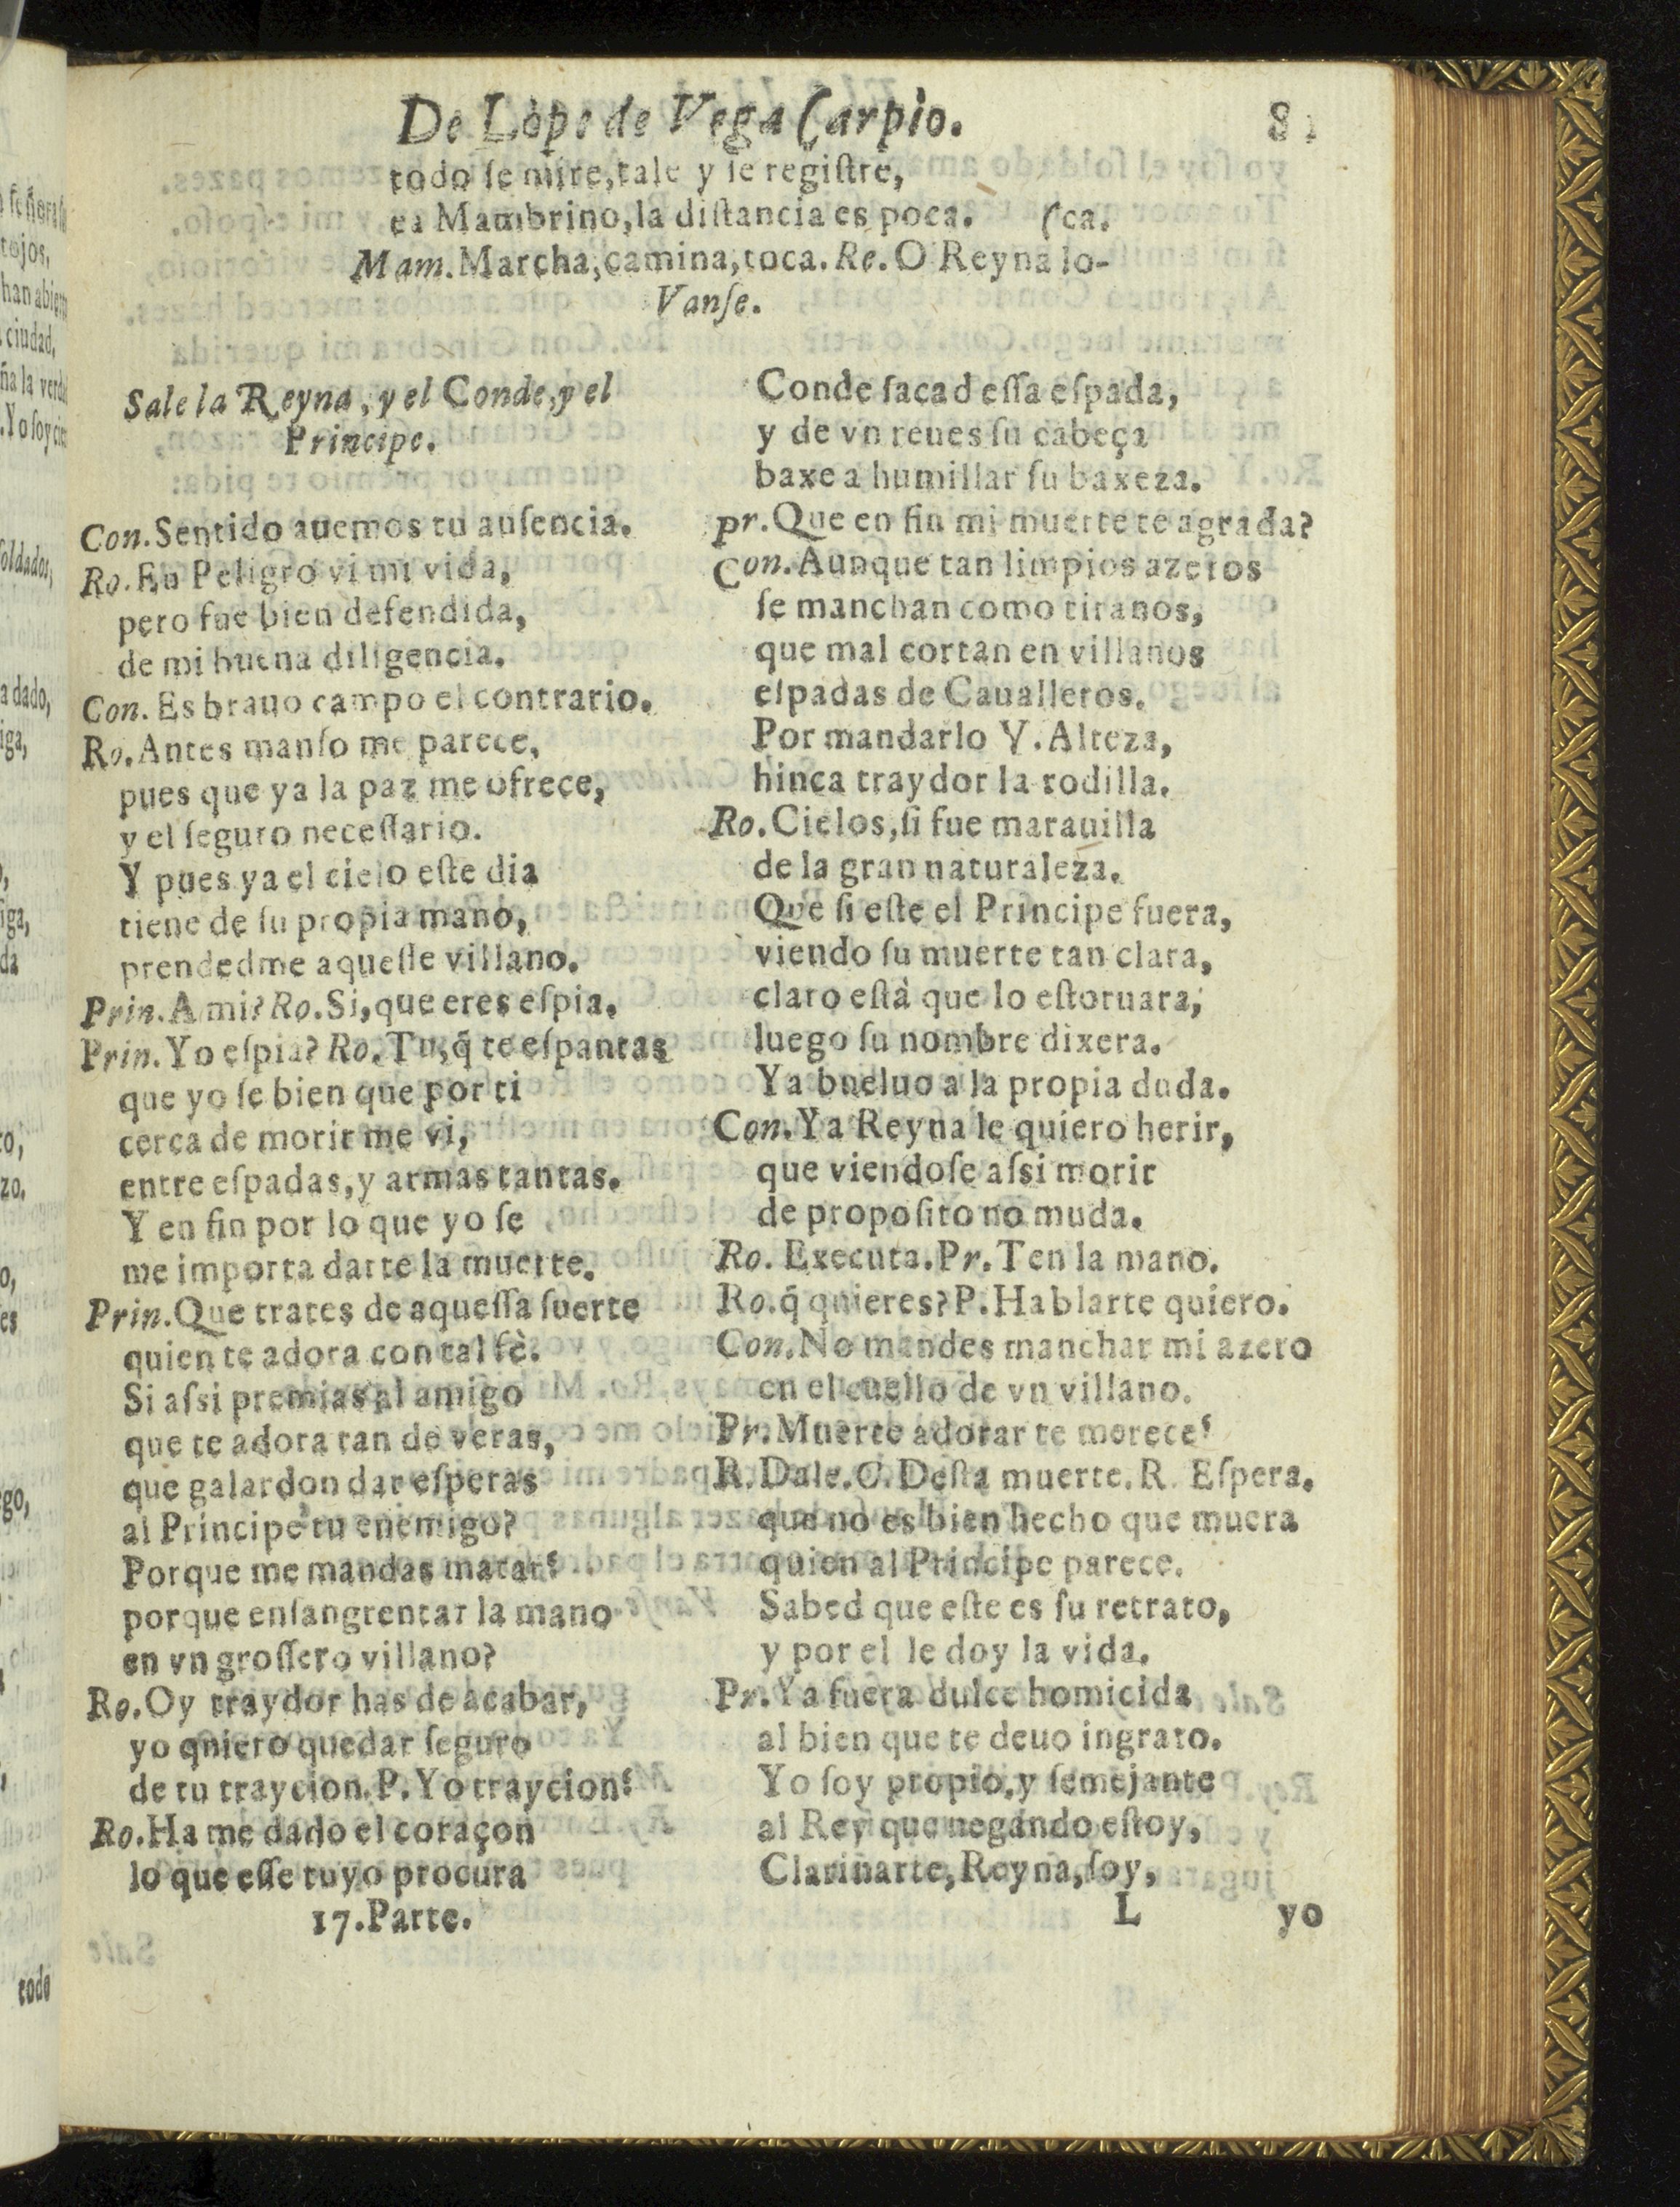 De Lope de Vega Carpio. 81
todo ſe mire, tale y ſe regiſtre,
ea Mambrino, la diſtancia es poca. (ca.
Mam. Marcha, camina, toca. Re. O Reyna lo-
Vanſe.
Sale la Reyna, y el Conde, y el
Principe.
Con. Sentido auemos tu auſencia.
Ro. En Peligro vi mi vida,
pero fue bien defendida,
de mi buena diligencia.
Con. Es brauo campo el contrario.
Ro. Antes manſo me parece,
pues que ya la paz me ofrece,
y el ſeguro neceſſario.
Y pues ya el cielo eſte dia
tiene de ſu propia mano,
prendedme aqueſſe villano.
Prin. A mi? Ro. Si, que eres eſpia.
Prin. Yo eſpia? Ro. Tu, q̃ te eſpantas
que yo ſe bien que por ti
cerca de morir me vi,
entre eſpadas, y armas tantas.
Y en fin por lo que yo ſe
me importa darte la muerte.
Prin. Que trates de aqueſſa ſuerte
quien te adora con tal fè.
Si aſsi premias al amigo
que te adora tan de veras,
que galardon dar eſperas
al Principe tu enemigo?
Porque me mandas matar?
porque enſangrentar la mano
en vn groſſero villano?
Ro. Oy traydor has de acabar,
yo quiero quedar ſeguro
de tu traycion. P. Yo traycion?
Ro. Ha me dado el coraçon
lo que eſſe tuyo procura
17. Parte.
Conde ſacad eſſa eſpada,
y de vn reues ſu cabeça
baxe a humillar ſu baxeza.
pr. Que en fin mi muerte te agrada?
Con. Aunque tan limpios azeros
ſe manchan como tiranos,
que mal cortan en villanos
eſpadas de Caualleros.
Por mandarlo V. Alteza,
hinca traydor la rodilla.
Ro. Cielos, ſi fue marauilla
de la gran naturaleza.
Que ſi eſte el Principe fuera,
viendo ſu muerte tan clara,
claro eſtà que lo eſtoruara,
luego ſu nombre dixera.
Ya bueluo a la propia duda.
Con. Ya Reyna le quiero herir,
que viendoſe aſsi morir
de propoſito no muda.
Ro. Executa. Pr. Ten la mano.
Ro. q̃ quieres? P. Hablarte quiero.
Con. No mandes manchar mi azero
en el cuello de vn villano.
Pr. Muerte adorar te merece?
R. Dale. C. Deſta muerte. R. Eſpera.
que no es bien hecho que muera
quien al Principe parece.
Sabed que eſte es ſu retrato,
y por el le doy la vida.
Pr. Ya fuera dulce homicida
al bien que te deuo ingrato.
Yo ſoy propio, y ſemejante
al Rey que negando eſtoy,
Clarinarte, Reyna, ſoy,
L yo